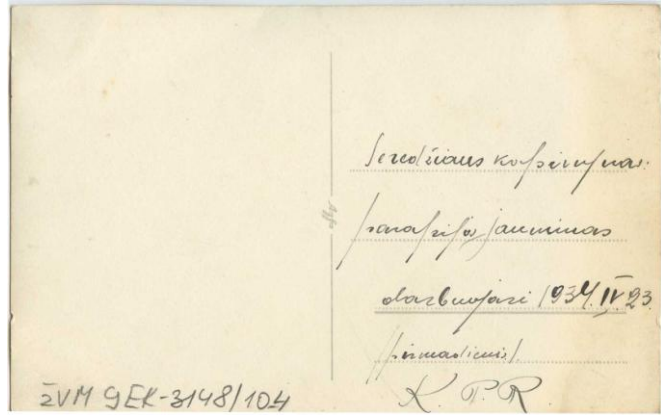 Seredžiaus kapinynas.
parapijos jaunimas
darbuojasi 1934.IV.23.
pirmadienis/.
K. P. R
ŽVM GEK-3148/104